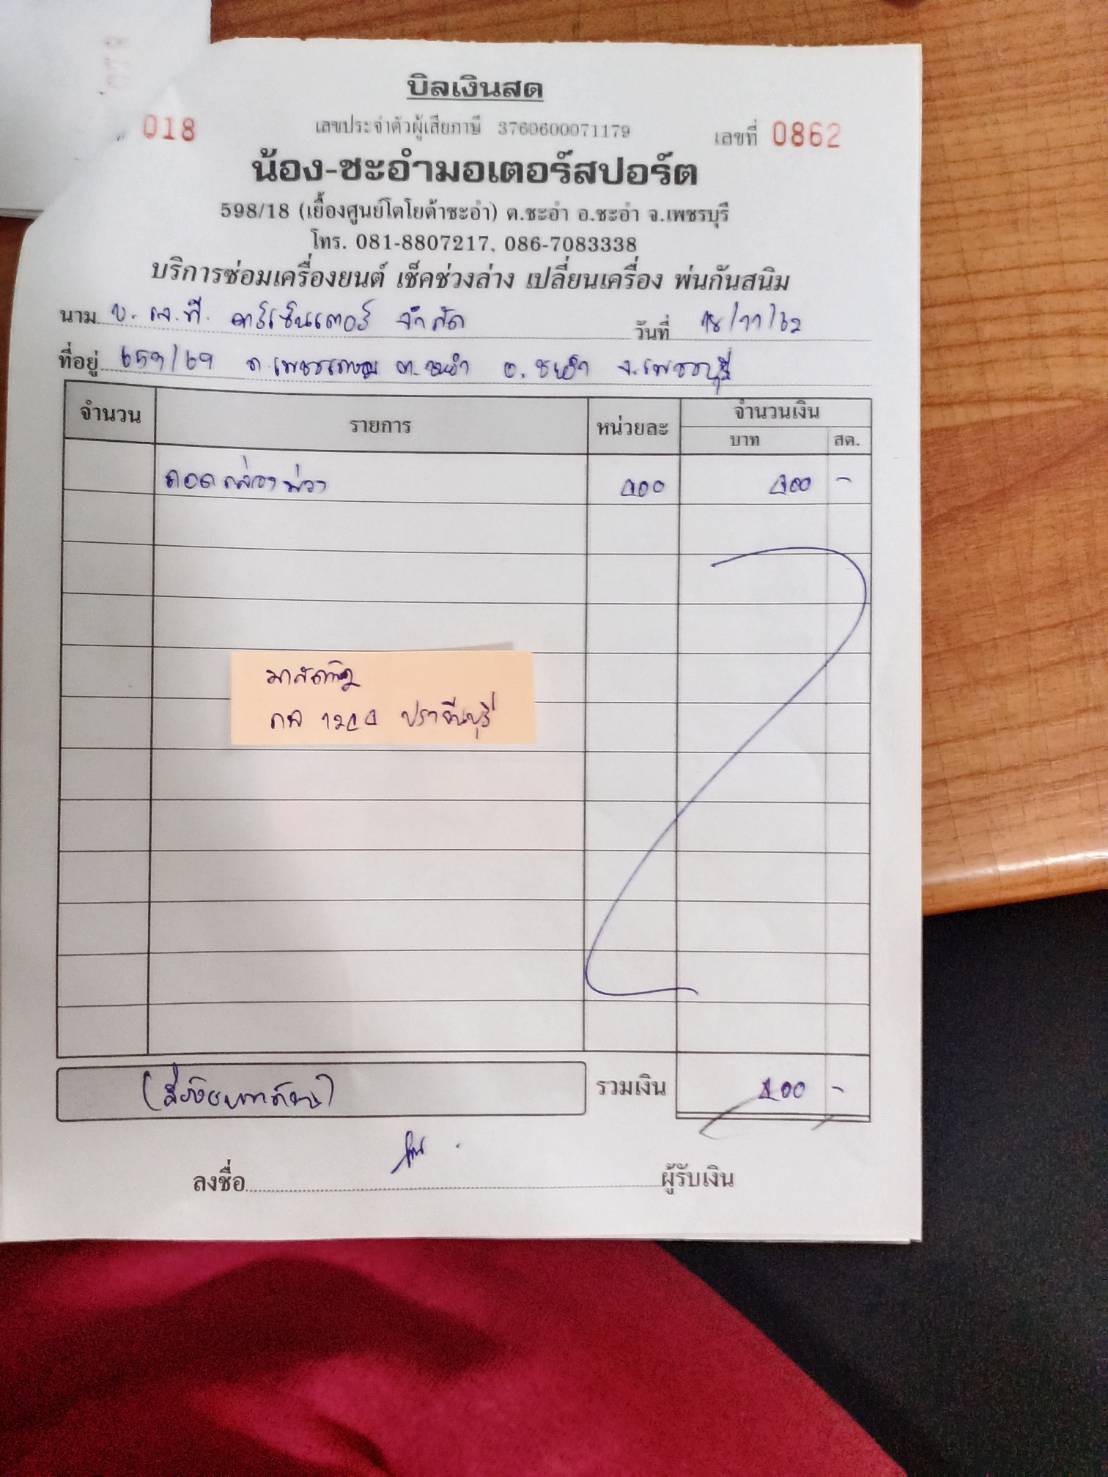 บิลเงินสด
018
เลขประจำตัวผู้เสียภาษี 3760600071179
เลขที่ 0862
น้อง-ชะอำมอเตอร์สปอร์ต
598/18 (เยื้องศูนย์โตโยต้าชะอำ) ต.ชะอำ อ.ชะอำ จ.เพชรบุรี
โทร. 081-8807217, 086-7083338
บริการซ่อมเครื่องยนต์ เช็คช่วงล่าง เปลี่ยนเครื่อง พ่นกันสนิม
นาม บ. เจ.ที. คาร์เซ็นเตอร์ จำกัด วันที่ 18/11/62
ที่อยู่ 659/69 ถ.เพชรเกษม ต.ชะอำ อ.ชะอำ จ.เพชรบุรี
จำนวน รายการ หน่วยละ จำนวนเงิน
บาท สต.
400 400 -
กล 1204 ปราจีนบุรี
(สี่ร้อยบาทถ้วน) รวมเงิน 400 -
ลงชื่อ ผู้รับเงิน